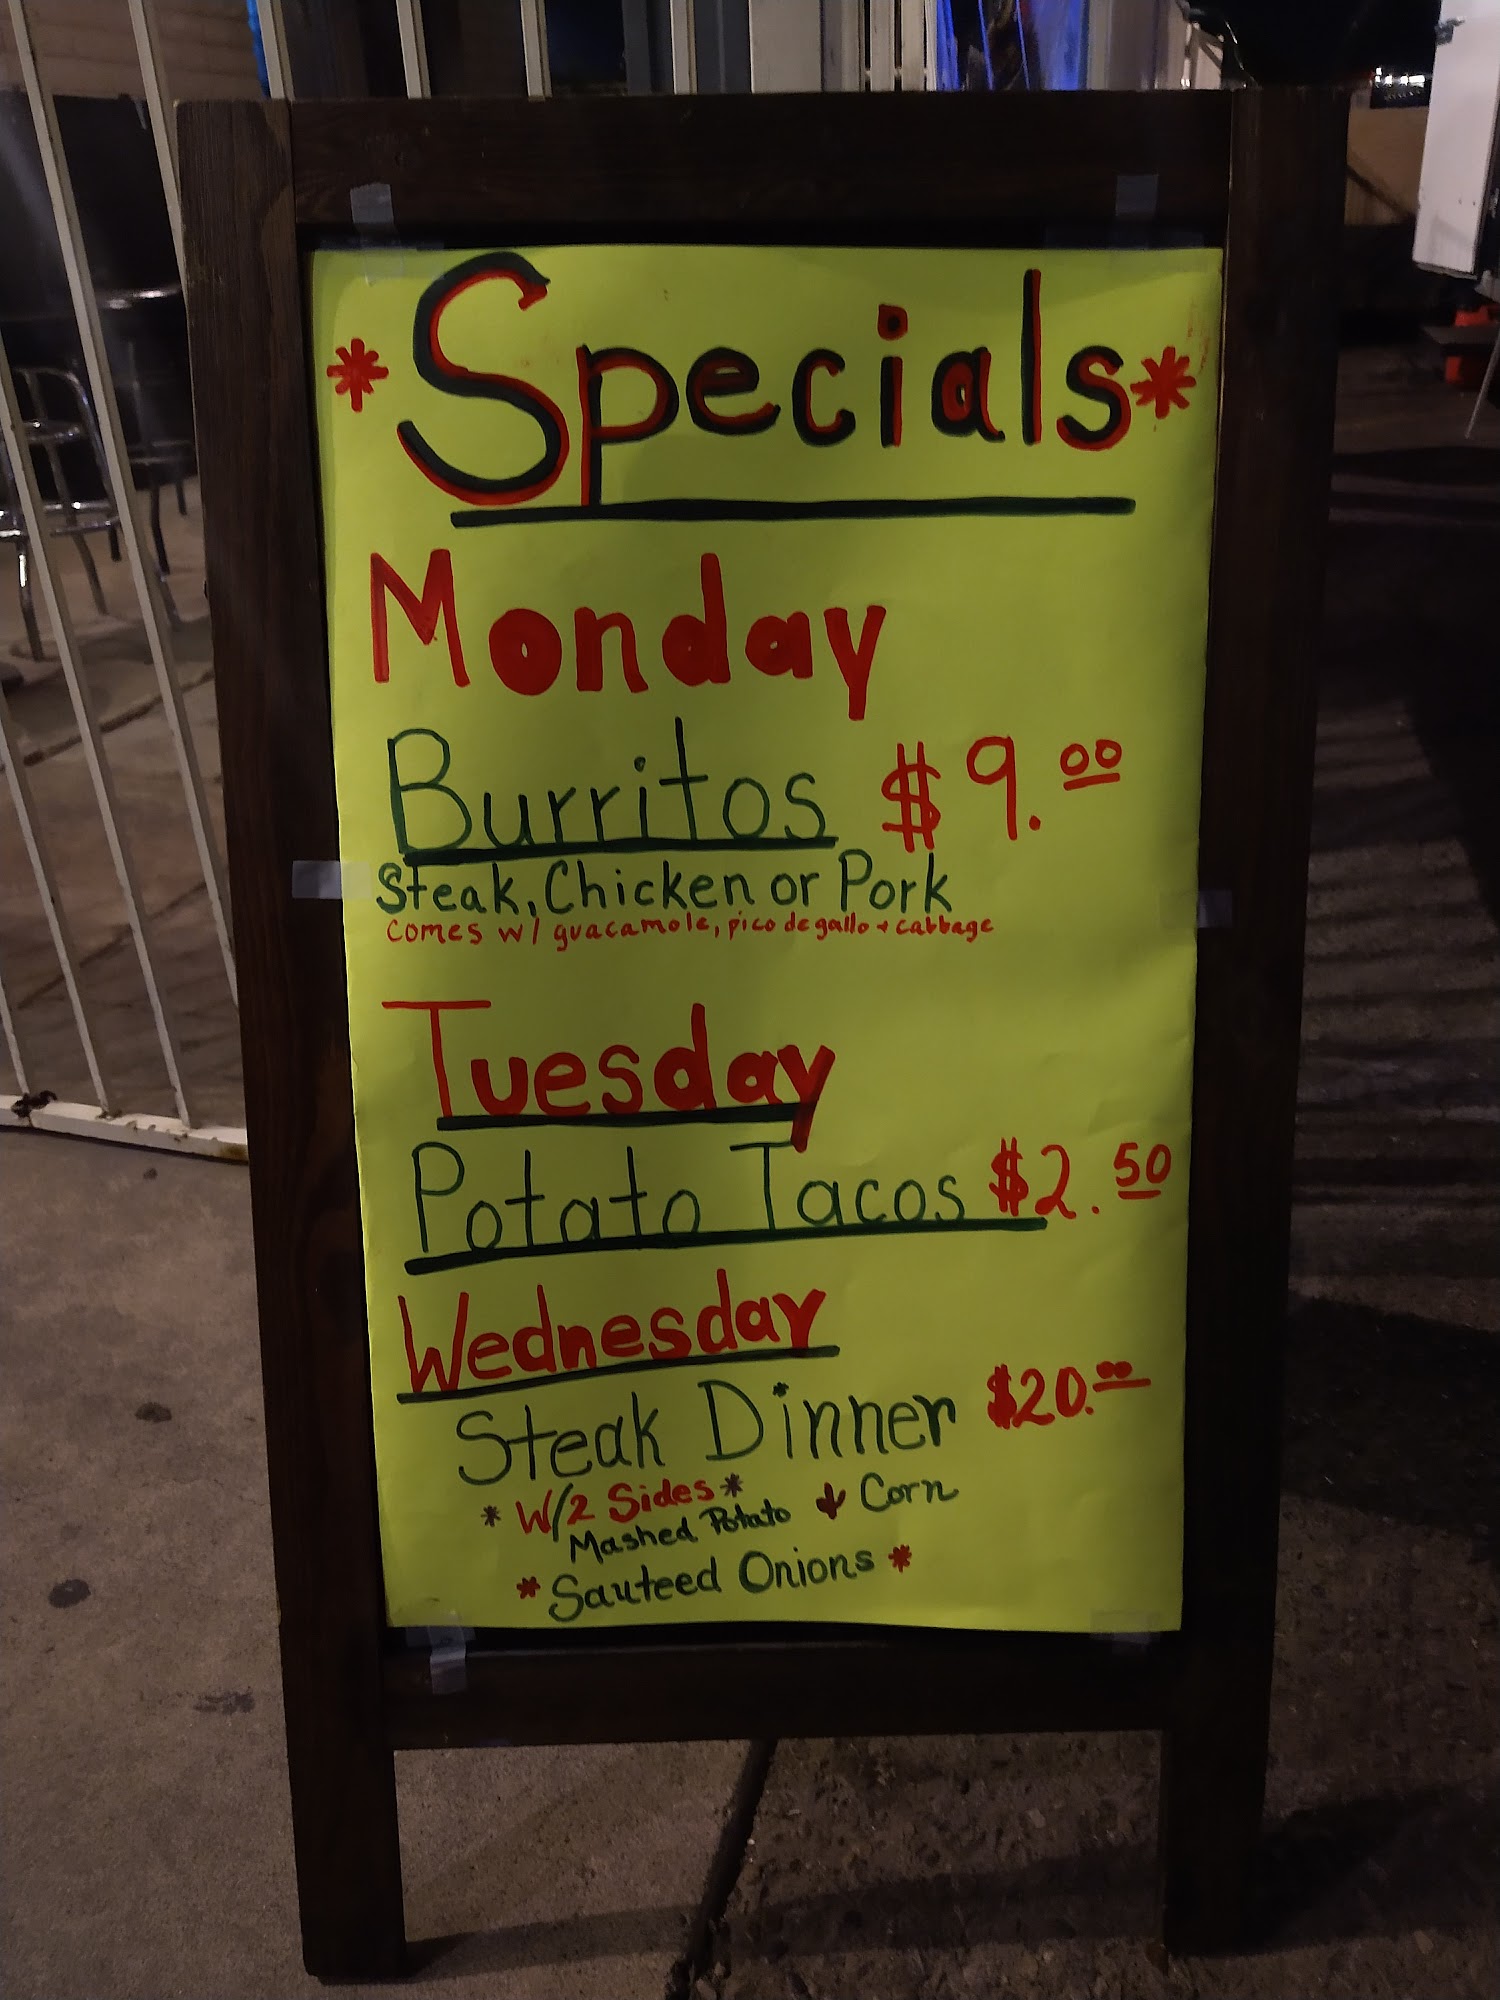 *Specials*
Monday
Burritos $9.00
Steak, Chicken or Pork
comes w/ guacamole, pico de gallo + cabbage
Tuesday
Potato Tacos $2.50
Wednesday
Steak Dinner $20.00
* W/2 Sides *
Mashed Potato + Corn
* Sauteed Onions *